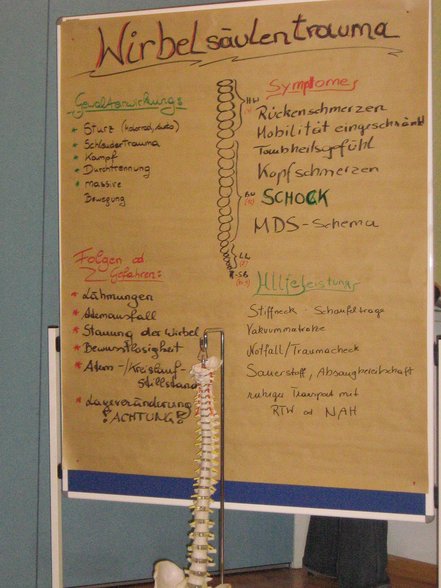 Wirbelsäulentrauma
Gewalteinwirkungs
• Sturz
• Schleudertrauma
• Kampf
• Durchtrennung
• massive
Bewegung
Symptome:
Rückenschmerzen
Mobilität eingeschränkt
Taubheitsgefühl
Kopfschmerzen
SCHOCK
MDS-Schema
Folgen od
Gefahren:
• Lähmungen
• Atemausfall
• Stauung der Wirbel
• Bewusstlosigkeit
• Atem-/Kreislauf
Stillstand
• Lageveränderung
ACHTUNG
Hilfeleistung:
Stiffneck, Schaufeltrage
Vakuummatratze
Notfall/Traumacheck
Sauerstoff, Absaugbereitschaft
ruhiger Transport mit
RTW od NAH